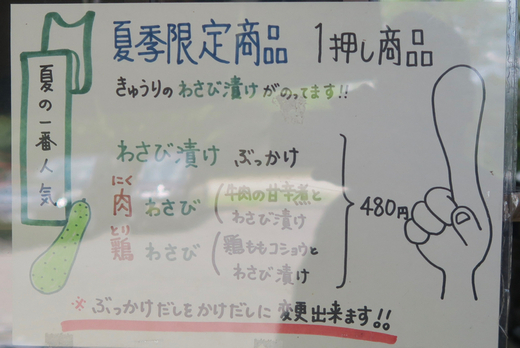 夏季限定商品 1押し商品
きゅうりのわさび漬けがのってます!!
夏の一番人気
わさび漬け ぶっかけ
にく
肉 わさび (牛肉の甘辛煮と
わさび漬け
とり
鶏 わさび (鶏ももコショウと
わさび漬け
480円
※ぶっかけだしをかけだしに変更出来ます!!